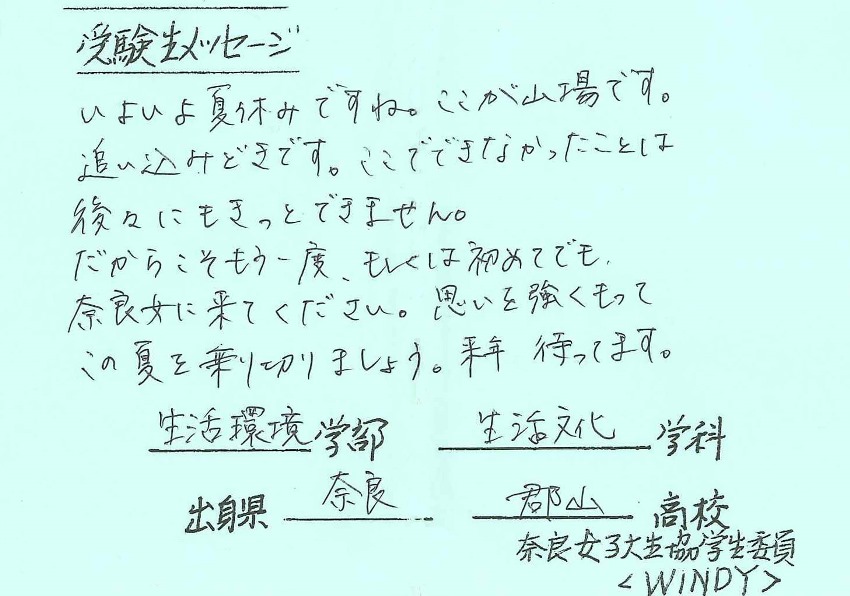 受験生メッセージ
いよいよ夏休みですね。ここが山場です。
追い込みどきです。ここでできなかったことは
後々にもきっとできません。
だからこそもう一度、もしくは初めてでも、
奈良女に来てください。思いを強くもって
この夏を乗り切りましょう。来年 待ってます。
生活環境学部 生活文化学科
出身県 奈良 郡山高校
奈良女子大生協学生委員
<WINDY>